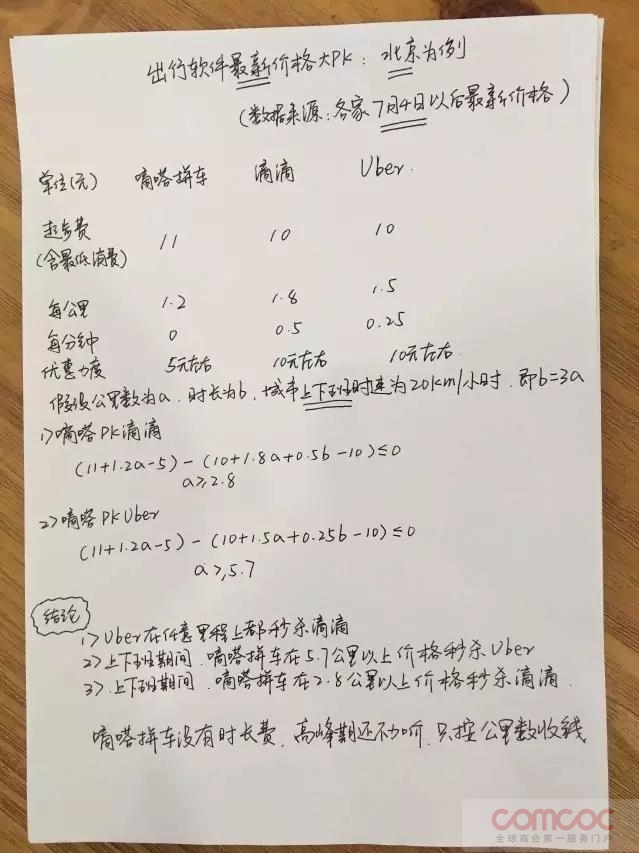 出行软件最新价格大PK：北京为例
（数据来源：各家7月4日以后最新价格）
单位(元) 嘀嗒拼车 滴滴 Uber.
起步费 11 10 10
(含最低消费)
每公里 1.2 1.8 1.5
每分钟 0 0.5 0.25
优惠力度 5元左右 10元左右 10元左右.
假设公里数为a，时长为b，城市上下班时速为20km/小时，即b=3a
1>嘀嗒PK滴滴
(11+1.2a-5)-(10+1.8a+0.5b-10)≤0
a≥2.8
2>嘀嗒PKUber
(11+1.2a-5)-(10+1.5a+0.25b-10)≤0
a≥5.7
结论
1>Uber在任意里程上都秒杀滴滴
2>上下班期间，嘀嗒拼车在5.7公里以上价格秒杀Uber
3>上下班期间，嘀嗒拼车在2.8公里以上价格秒杀滴滴.
嘀嗒拼车没有时长费，高峰期还不加价，只按公里数收钱
comcoc
全球商会第一服务门户